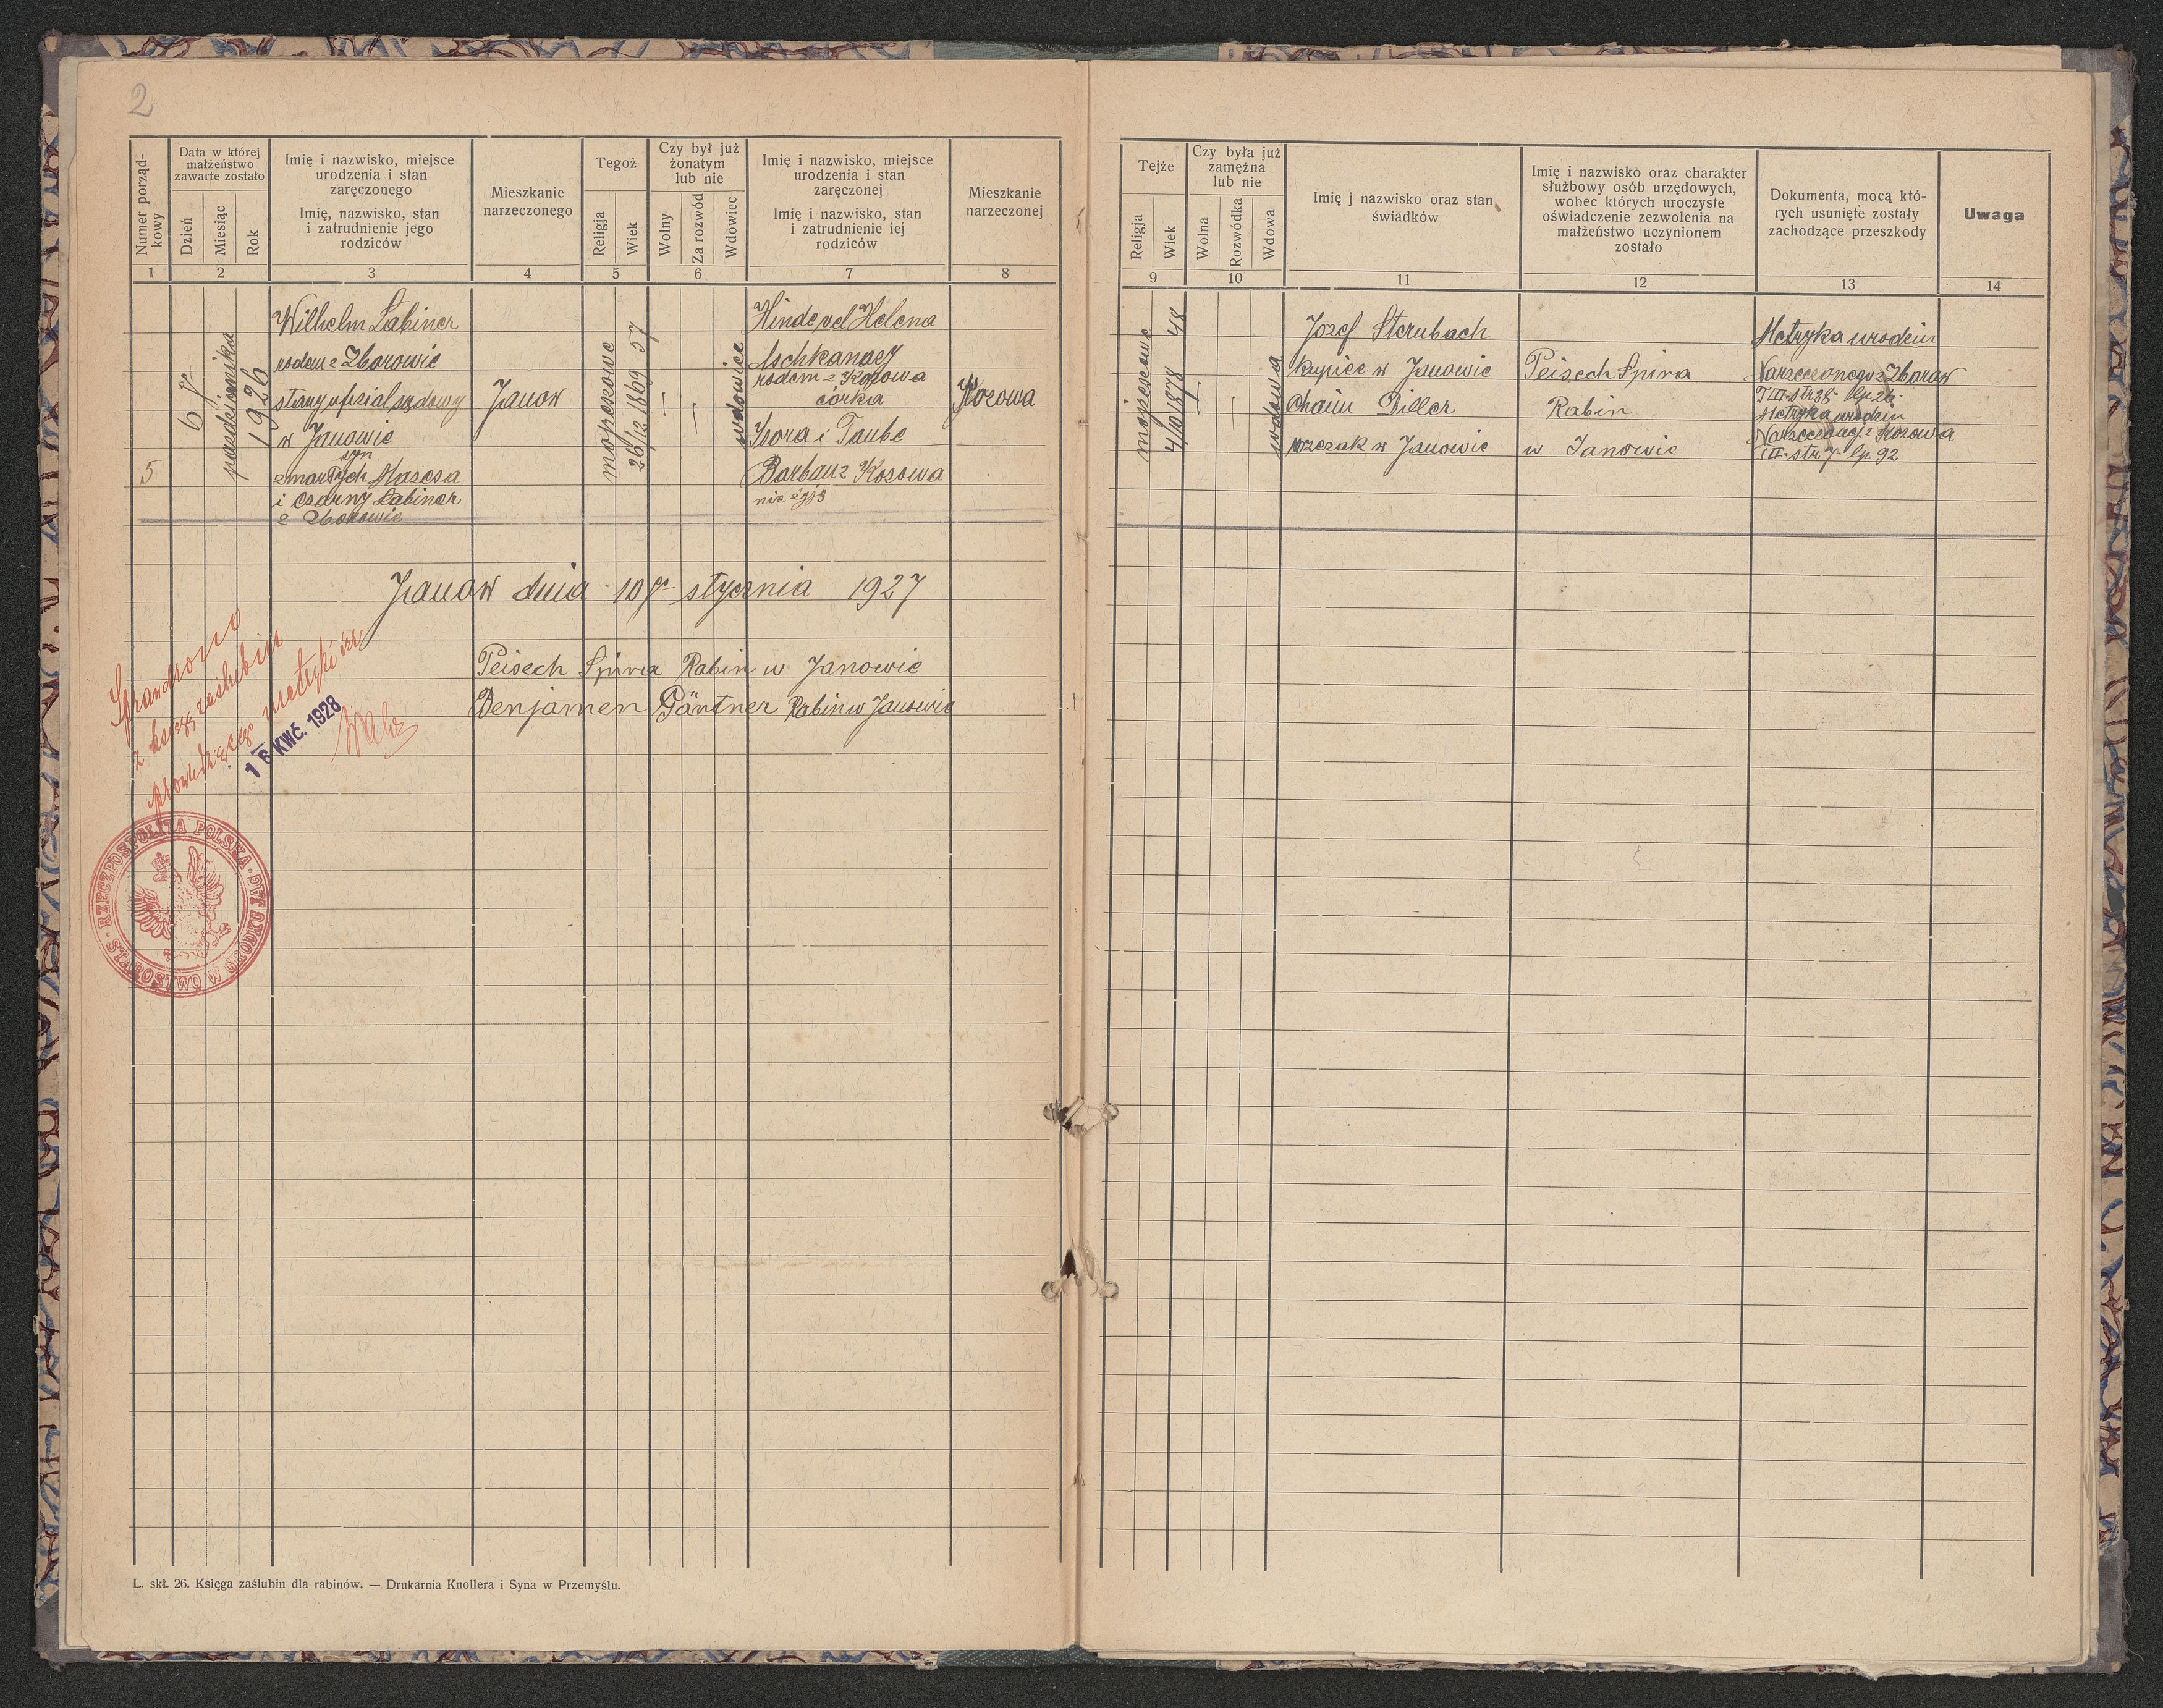 2
Numer porząd-
kowy
Data w której
małżeństwo
zawarte zostało
Dzień
Miesiąc
Rok
Imię i nazwisko, miejsce
urodzenia i stan
zaręczonego
Imię, nazwisko, stan
i zatrudnienie jego
rodziców
Mieszkanie
narzeczonego
Tegoż
Religja
Wiek
Czy był już
żonatym
lub nie
Wolny
Za rozwód
Wdowiec
Imię i nazwisko, miejsce
urodzenia i stan
zaręczonej
Imię i nazwisko, stan
i zatrudnienie iej
rodziców
Mieszkanie
narzeczonej
1 2 3 4 5 6 7 8
Tejże
Religja
Wiek
Czy była już
zamężna
lub nie
Wolna
Rozwódka
Wdowa
Imię j nazwisko oraz stan
świadków
Imię i nazwisko oraz charakter
służbowy osób urzędowych,
wobec których uroczyste
oświadczenie zezwolenia na
małżeństwo uczynionem
zostało
Dokumenta, mocą któ-
rych usunięte zostały
zachodzące przeszkody
Uwaga
9 10 11 12 13 14
5
6
października
1926
Wilhelm Labiner
rodem z Zborowie
stary oficjal sądowy
w Janowie
syn
zmarłych Mascsa
i Czarny Labiner
z Zborowie
Janow
mojżeszowe
26/12 1869 57
wdowiec
Hinde vel Helena
Aschkanazy
rodem z Kozowa
córka
Isora i Taube
Barban z Kozowa
nie żyją
Kozowa
mojżeszowe
4/10 1878 48
wdowa
Jozef Sterubach
kupiec w Janowie
Chaim Diller
rzezak w Janowie
Peisech Spira
Rabin
w Janowie
Metryka urodzin
Narzeczonego z Zborow
T III. str 38. lp 26.
Metryka urodzin
Narzeczonej z Kozowa
III. str 7. lp 92
Janow dnia 10 go stycznia 1927
Peisech Spira Rabin w Janowie
Benjamen Gärtner Rabin w Janowie
Sprawdzono
z księgą zaślubin
prowadzącego metryki izr.
16 KWĆ. 1928
RZECZPOSPOLITA POLSKA
STAROSTWO W GRÓDKU JAG.
L. skł. 26. Księga zaślubin dla rabinów. — Drukarnia Knollera i Syna w Przemyślu.